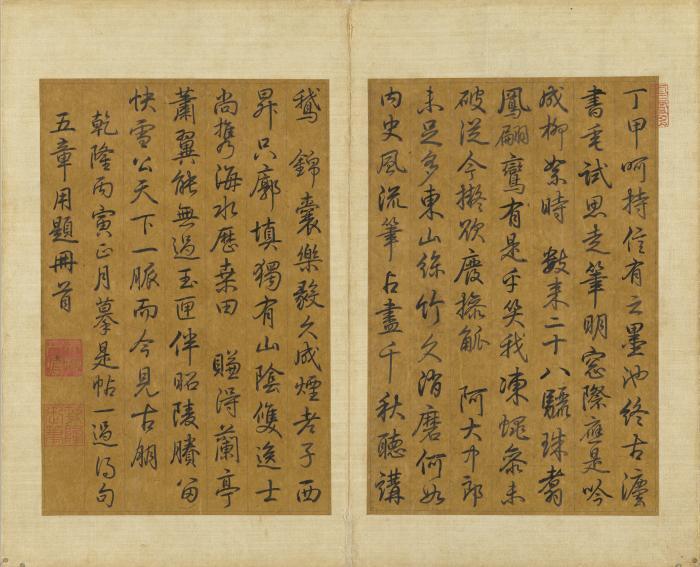 丁甲呵持信有之墨池終古
書垂試思走筆明窗際應是吟
成柳絮時 數來二十八驪珠翥
鳳翩鸞有是乎笑我凍蠅參未
破從今擬欲廢操觚 阿大中郎
未足多東山絲竹久消磨何如
內史風流筆占盡千秋聽講
鵝 錦囊樂毅久成煙老子西
昇只廓填獨有山陰雙逸士
尚攜海水歷桑田 賺得蘭亭
蕭翼能無過玉匣伴昭陵賸留
快雪公天下一脈而今見古朋
乾隆丙寅正月摹是帖一過得句
五章用題冊首